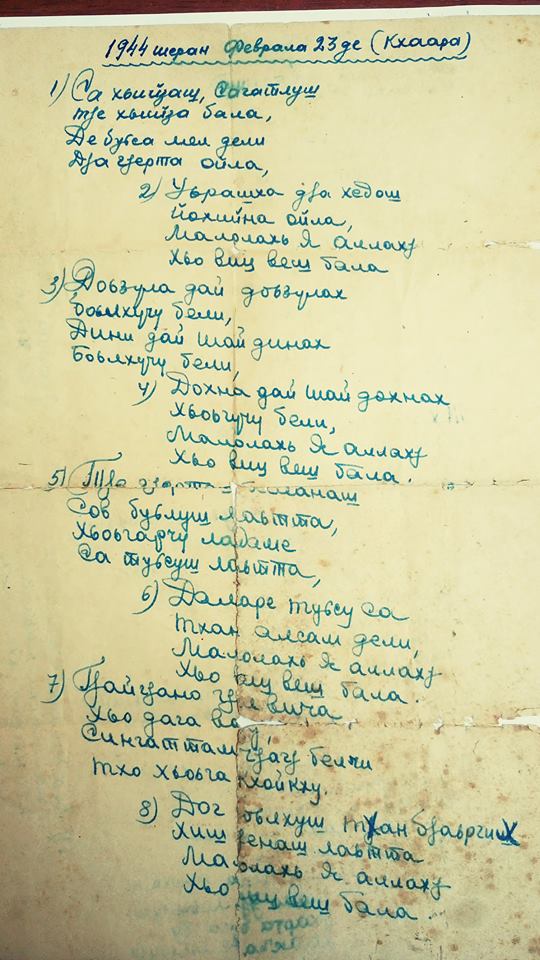 1944 шеран Февраля 23 де (Кхаара)
1) Са хьийзаш, сагатлуш
тӏе хьийза бала,
Де буьса мел дели
Дӏа гӏерта ойла,
2) Уьрашха дӏа хедош
Йохийна ойла,
Малолахь я аллахӏ
Хьо виц веш бала
3) Доьзула дай доьзулах
боьлхучу бели,
Дини дай шай динах
Боьлхучу бели,
4) Дохна дай шай дохнах
Хьоьгучу бели,
Малолахь я аллахӏ
Хьо виц веш бала.
5)
Сов буьлуш лаьтта,
Хьоьгарчу лабаме
Са туьсуш лаьтта,
6) Даларе туьсу са
тхан алсам дели,
Малолахь я аллахӏ
Хьо виц веш бала.
7)
Хьо дага
Сингаттам
тхо хьоьга кхойкху.
8) Дог боьлхуш тхан бӏаьргиш
Хиш венаш лаьтта
Малолахь я аллахӏ
Хьо виц веш бала.